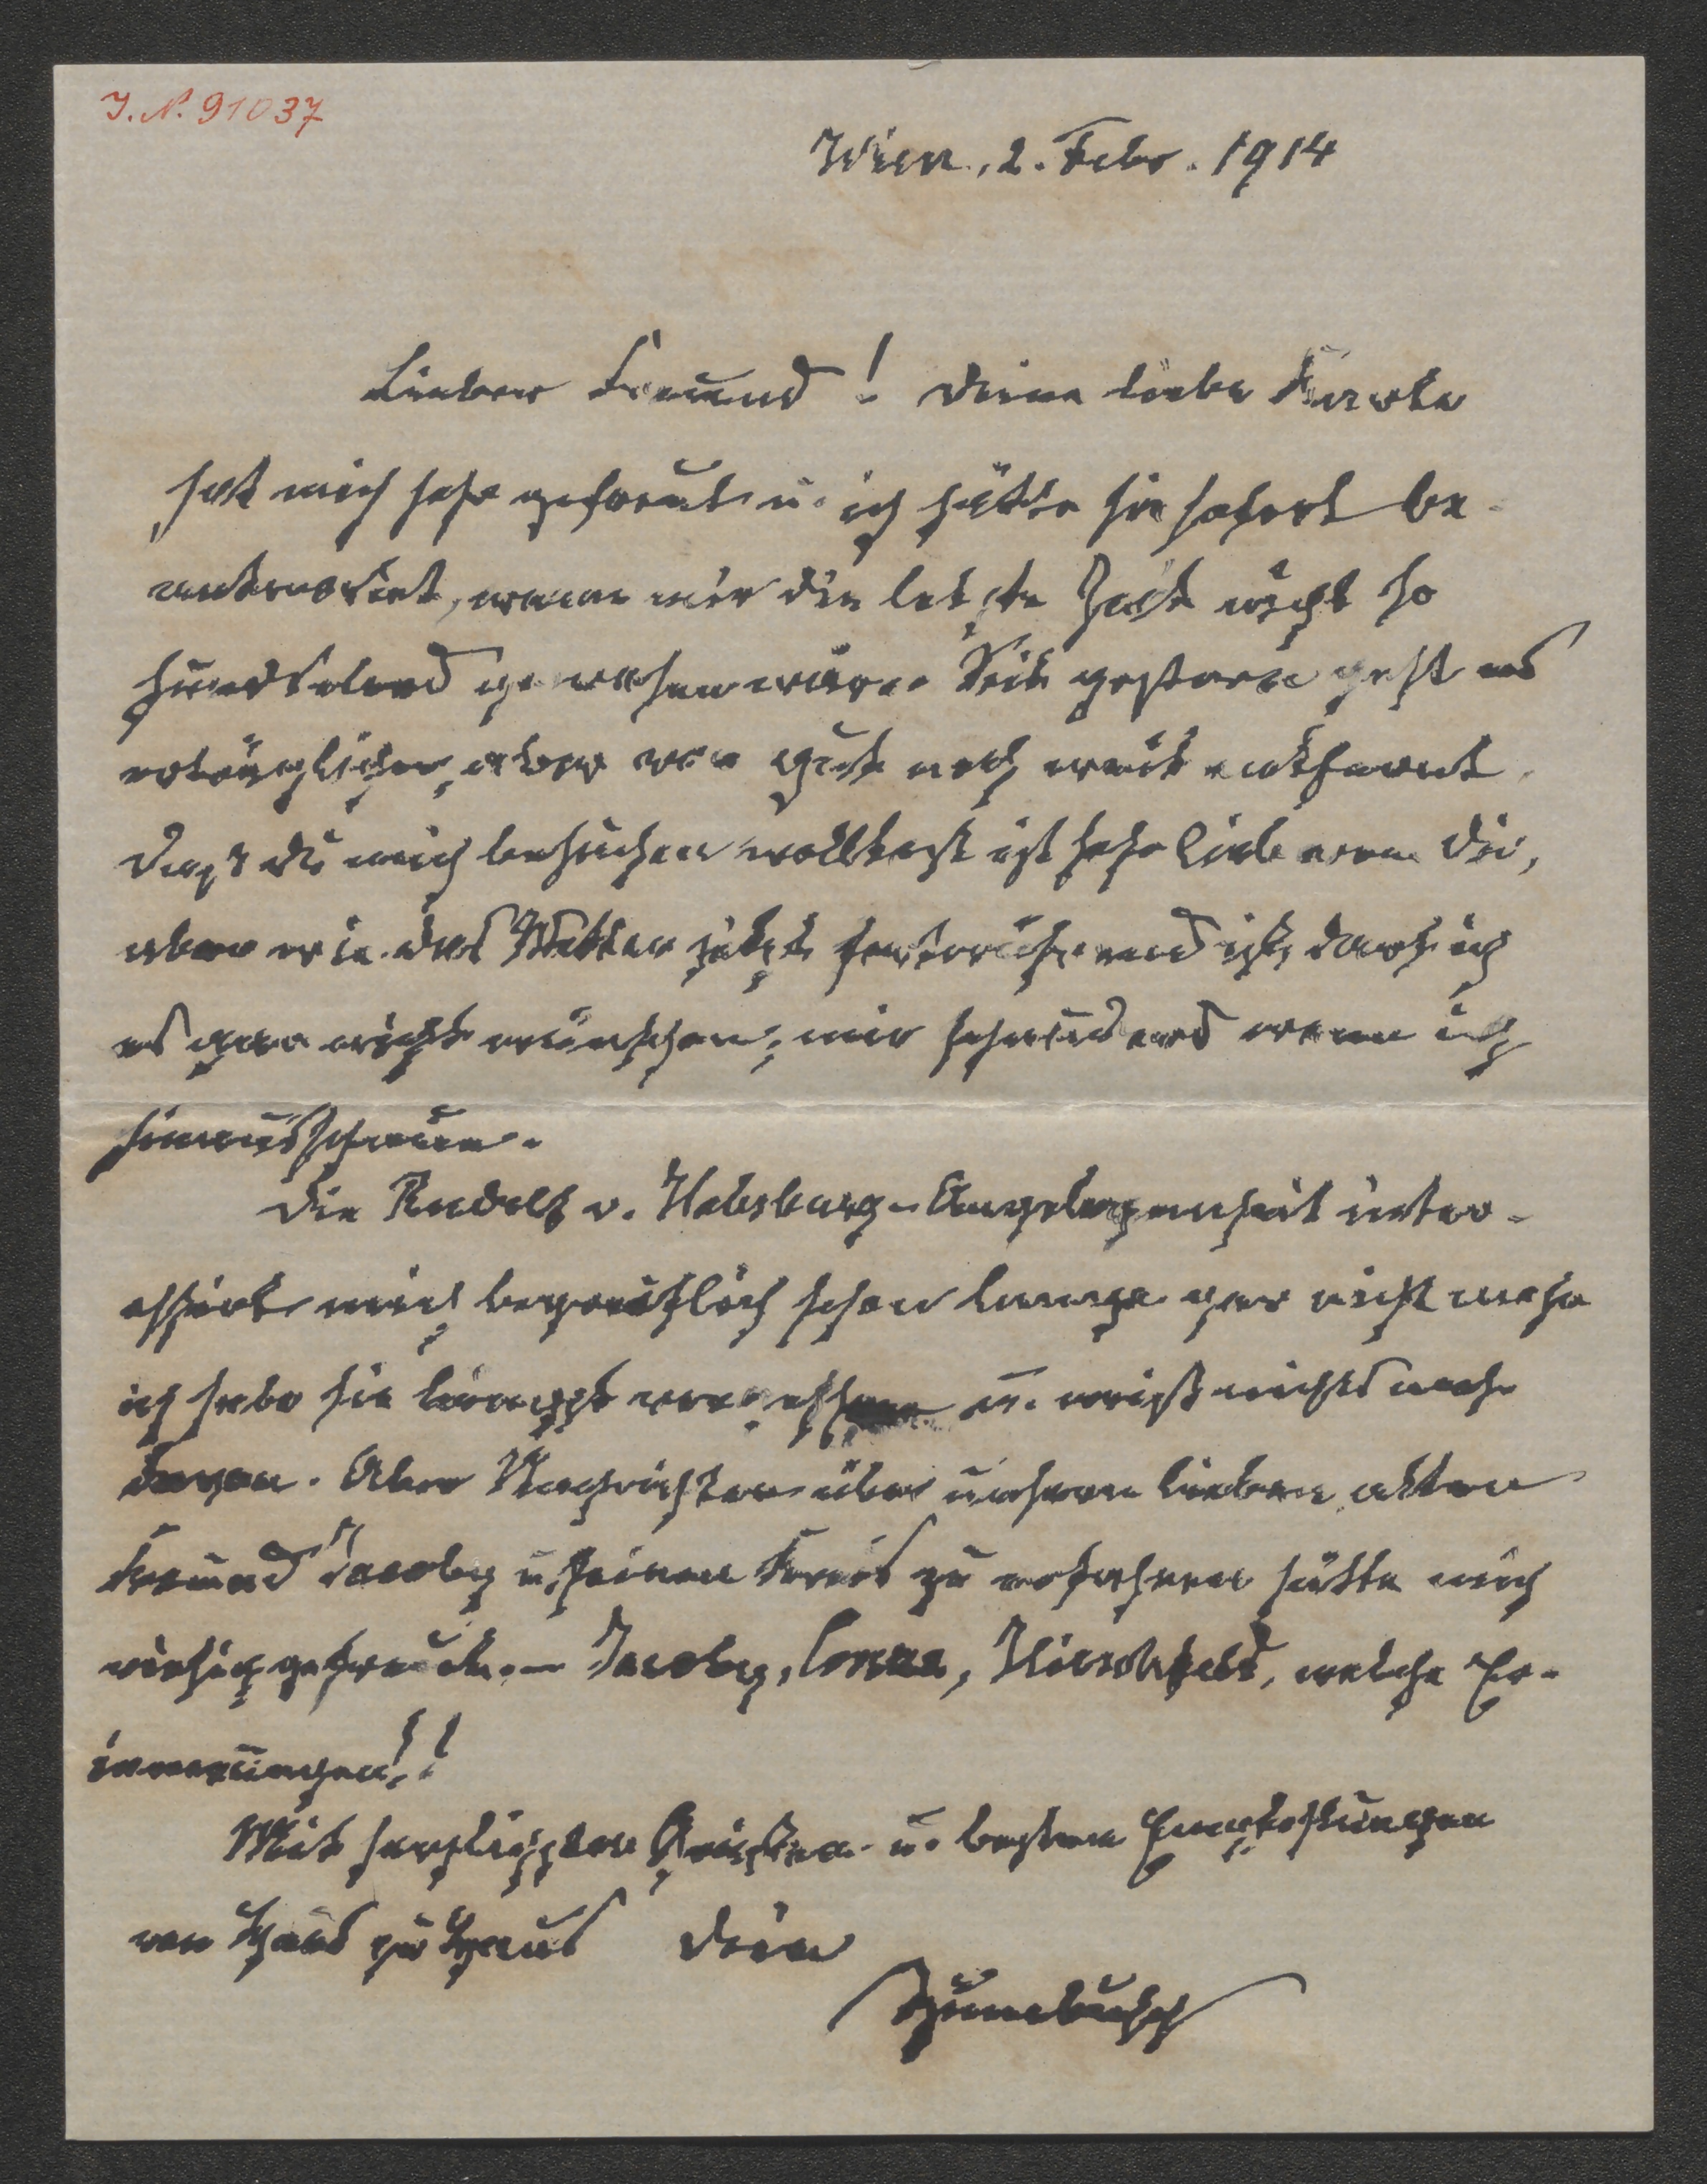 J. N. 91037
Wien, 2. Febr. 1914
Lieber Freund! Deine liebe Karte
hat mich sehr gefreut u. ich hätte sie sofort be-
antwortet, wenn mir die letzte Zeit nicht so
hundselend gewesen wäre. Seit gestern geht es
erträglicher, aber von gut noch weit entfernt.
Dass du mich besuchen wolltest ist sehr lieb von dir,
aber wie das Wetter jetzt fortwährend ist, darf ich
es gar nicht wünschen; mir schaudert wenn ich
hinausschaue.
Die Rudolf v. Habsburg-Angelegenheit inter-
essirt mich begreiflich schon lange gar nicht mehr
ich habe sie längst vergessen u. weiß nichts mehr
davon. Aber Nachrichten über unseren lieben alten
Freund Jacoby u. seinen Kreis zu erfahren hätte mich
riesig gefreut. – Jacoby, Conze, Hirschfeld, welche Er-
innerungen!!
Mit herzlichsten Grüßen u. besten Empfehlungen
von Haus zu Haus dein
Zumbusch